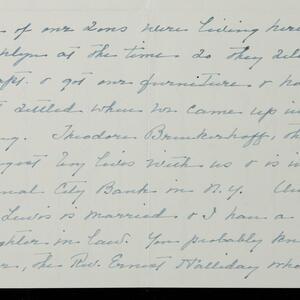 of our sons were living here
at the time so they
apt. & got our furniture &
settled when we came up in
Theodore Brinkerhoff,
lives with us & is
City Bank in N.Y.
Lewis is married & I have a
in law. You probably
the Rev. Ernest Halliday who